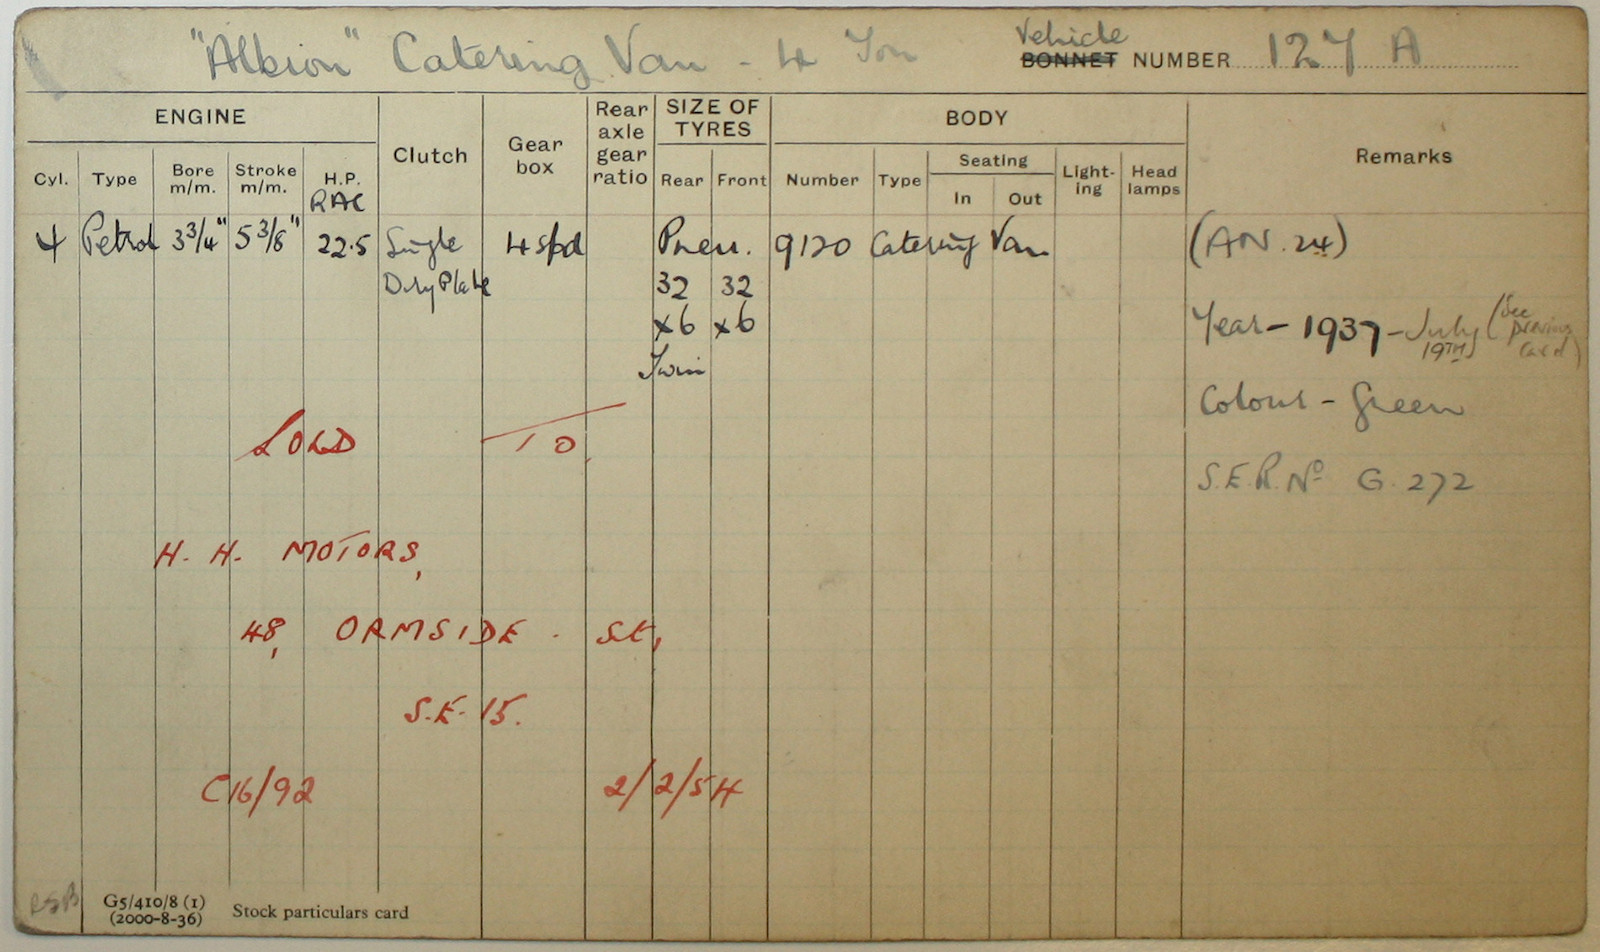 "Albion" Catering Van - 4 Ton
Vehicle
BONNET NUMBER 127 A
ENGINE
Clutch
Gear box
Rear axle gear ratio
SIZE OF TYRES
BODY
Remarks
Cyl.
Type
Bore m/m.
Stroke m/m.
H.P.
RAC
Rear
Front
Number
Type
Seating
In
Out
Light-ing
Head lamps
4 Petrol 3 3/4" 5 3/8" 22.5 Single 4 spd Pneu. 9120 Catering Van (AN. 24)
Dry Plate 32 32
x6 x6 Year - 1937 - July (See previous card)
19TH
Twin
Colour - Green
SOLD TO
S.E.R. No G. 272
H. H. MOTORS,
48, ORMSIDE. St,
S.E. 15.
C16/92 2/2/54
G5/410/8 (1)
(2000-8-36) Stock particulars card